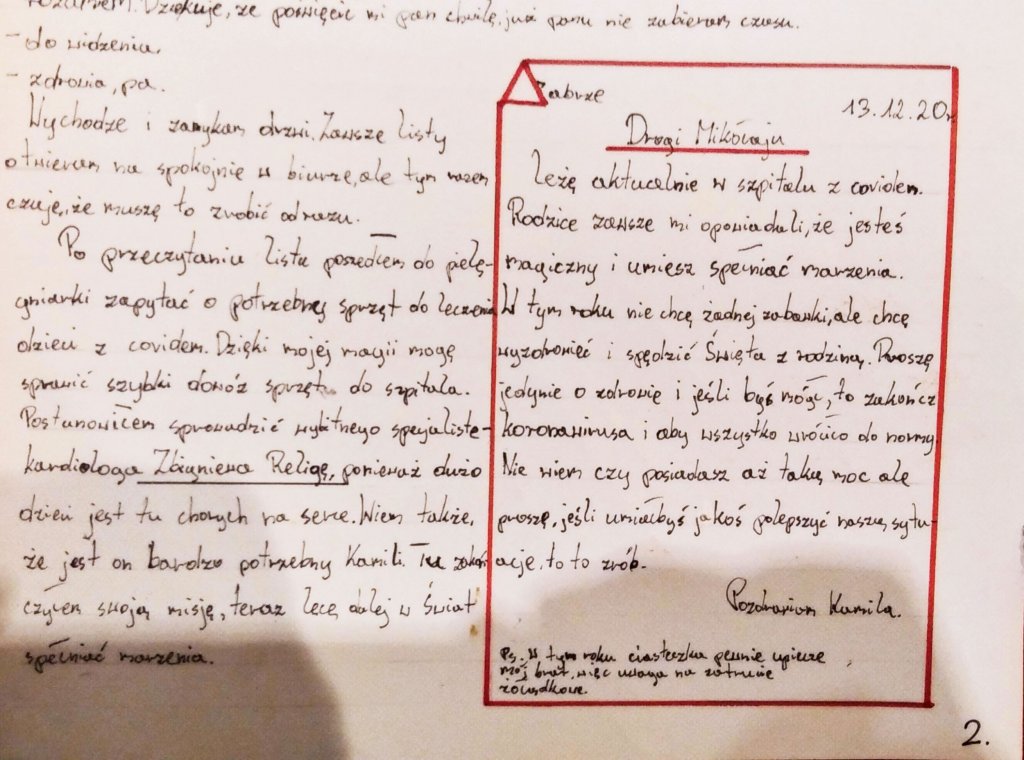 rozumiem. Dziękuje, że poświęcił mi pan chwilę, już panu nie zabieram czasu.
- do widzenia.
- zdrowia, pa.
Wychodze i zamykam drzwi. Zawsze listy
otwieram na spokojnie w biurze, ale tym razem
czuję, że muszę to zrobić odrazu.
Po przeczytaniu listu poszedłem do pielę-
gniarki zapytać o potrzebny sprzęt do leczenia
dzieci z covidem. Dzięki mojej magii mogę
sprawić szybki dowóz sprzętu do szpitala.
Postanowiłem sprowadzić wybitnego specjaliste-
kardiologa Zbigniewa Religę, ponieważ dużo
dzieci jest tu chorych na serce. Wiem także,
że jest on bardzo potrzebny Kamili. Tu zakoń
czyłem swoją misję, teraz lecę dalej w Świat
spełniać marzenia.
Zabrze
13.12.20r.
Drogi Mikołaju
Leżę aktualnie w szpitalu z covidem.
Rodzice zawsze mi opowiadali, że jesteś
magiczny i umiesz spełniać marzenia.
W tym roku nie chcę żadnej zabawki, ale chcę
wyzdrowieć i spędzić Święta z rodziną. Proszę
jedynie o zdrowie i jeśli byś mógł, to zakończ
koronawirusa i aby wszystko wróciło do normy.
Nie wiem czy posiadasz aż taką moc ale
proszę, jeśli umiałbyś jakoś polepszyć naszą sytu-
ację, to to zrób.
Pozdrawiam Kamila.
Ps. W tym roku ciasteczka pewnie upiecze
mój brat, więc uwaga na zatrucie
żołądkowe.
2.